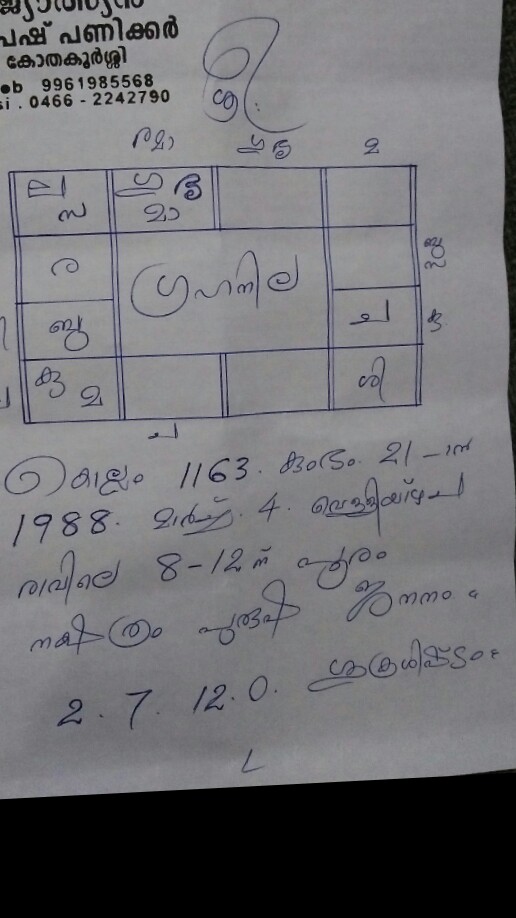 ജ്യോത്സ്യൻ
പഷ് പണിക്കർ
കോതകുർശ്ശി
eb 9961985568
si. 0466 - 2242790
ശ്രീ
രമാ ഗുശു മ
ല ഗു ശു
സ മാ
ര
ഗ്രഹനില
ബു സ
ബു
ച
കു
കു മ
ശി
ച
കൊല്ലം 1163. കുംഭം 21-ന്
1988. മാർച്ച്. 4. വെള്ളിയാഴ്ച
രാവിലെ 8-12ന് പൂരം
നക്ഷത്രം പുരുഷ ജനനം.
2. 7. 12. 0. ശുക്രശിഷ്ടം.